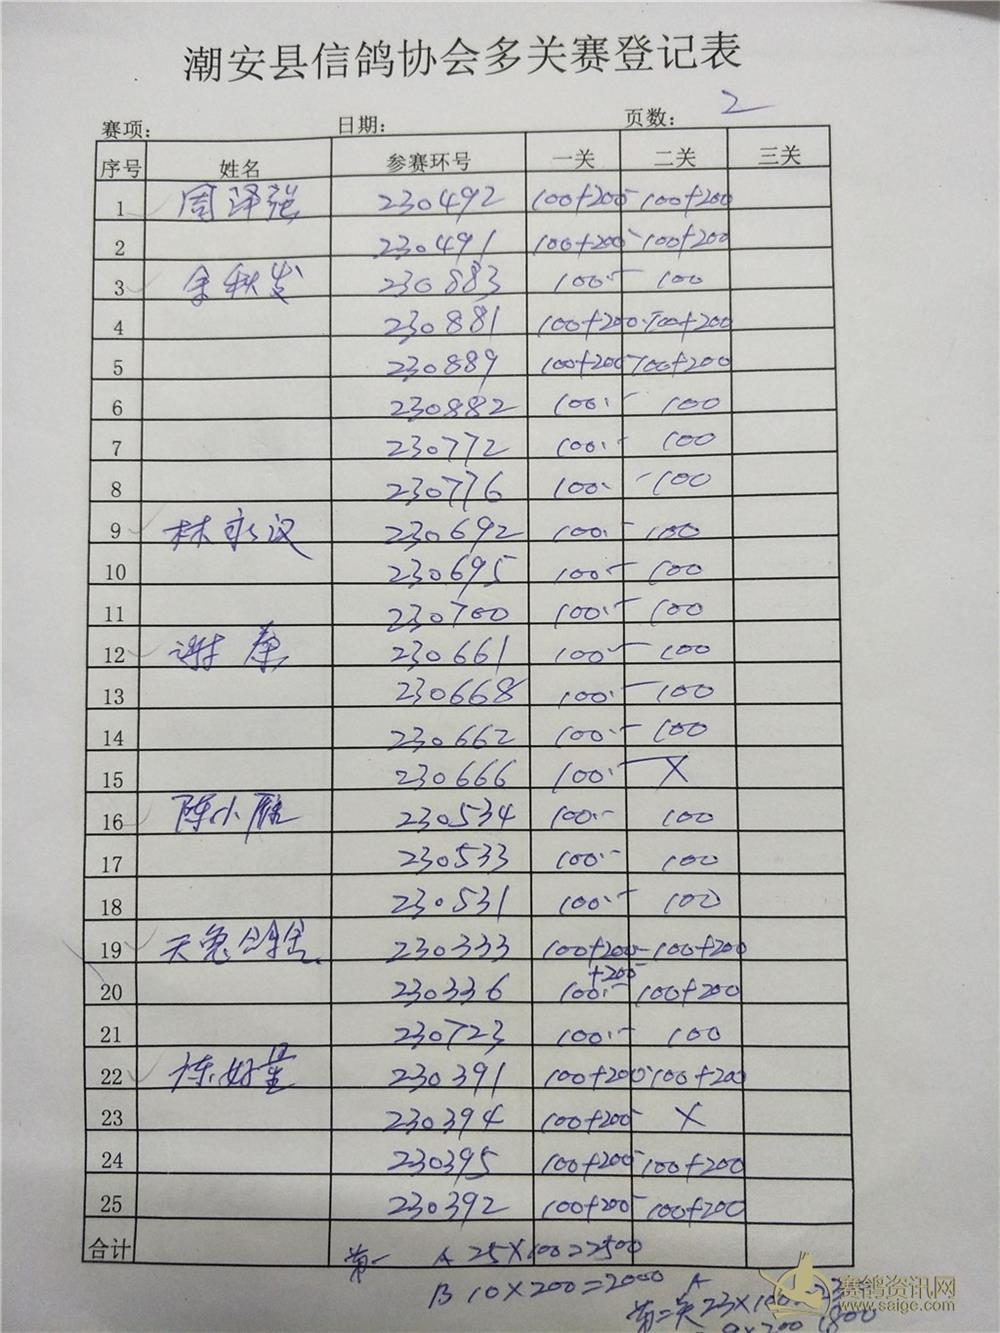 潮安县信鸽协会多关赛登记表
赛项： 日期： 页数： 2
序号 姓名 参赛环号 一关 二关 三关
1 周泽强 230492 100+200- 100+200
2 230491 100+200- 100+200
3 余秋岁 230883 100.- 100
4 230881 100+200.- 100+200
5 230889 100+200- 100+200
6 230882 100.- 100
7 230772 100.- 100
8 230776 100.- 100
9 林永汉 230692 100.- 100
10 230695 100.- 100
11 230700 100.- 100
12 谢 230661 100.- 100
13 230668 100.- 100
14 230662 100.- 100
15 230666 100.- X
16 陈小 230534 100.- 100
17 230533 100.- 100
18 230531 100.- 100
19 天兔鸽舍 230333 100+200- 100+200
+200-
20 230336 100.- 100+200
21 230723 100.- 100
22 栋 230391 100+200- 100+200
23 230394 100+200- X
24 230395 100+200- 100+200
25 230392 100+200- 100+200
合计 第一 A 25X100=2500
B 10X200=2000 A
第二关 23X100
9X200 1800
赛鸽资讯网
www.saige.com